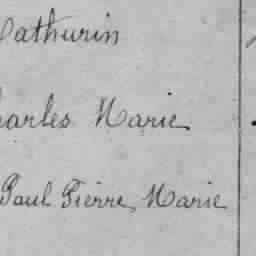 Mathurin
Charles Marie
Paul Pierre Marie